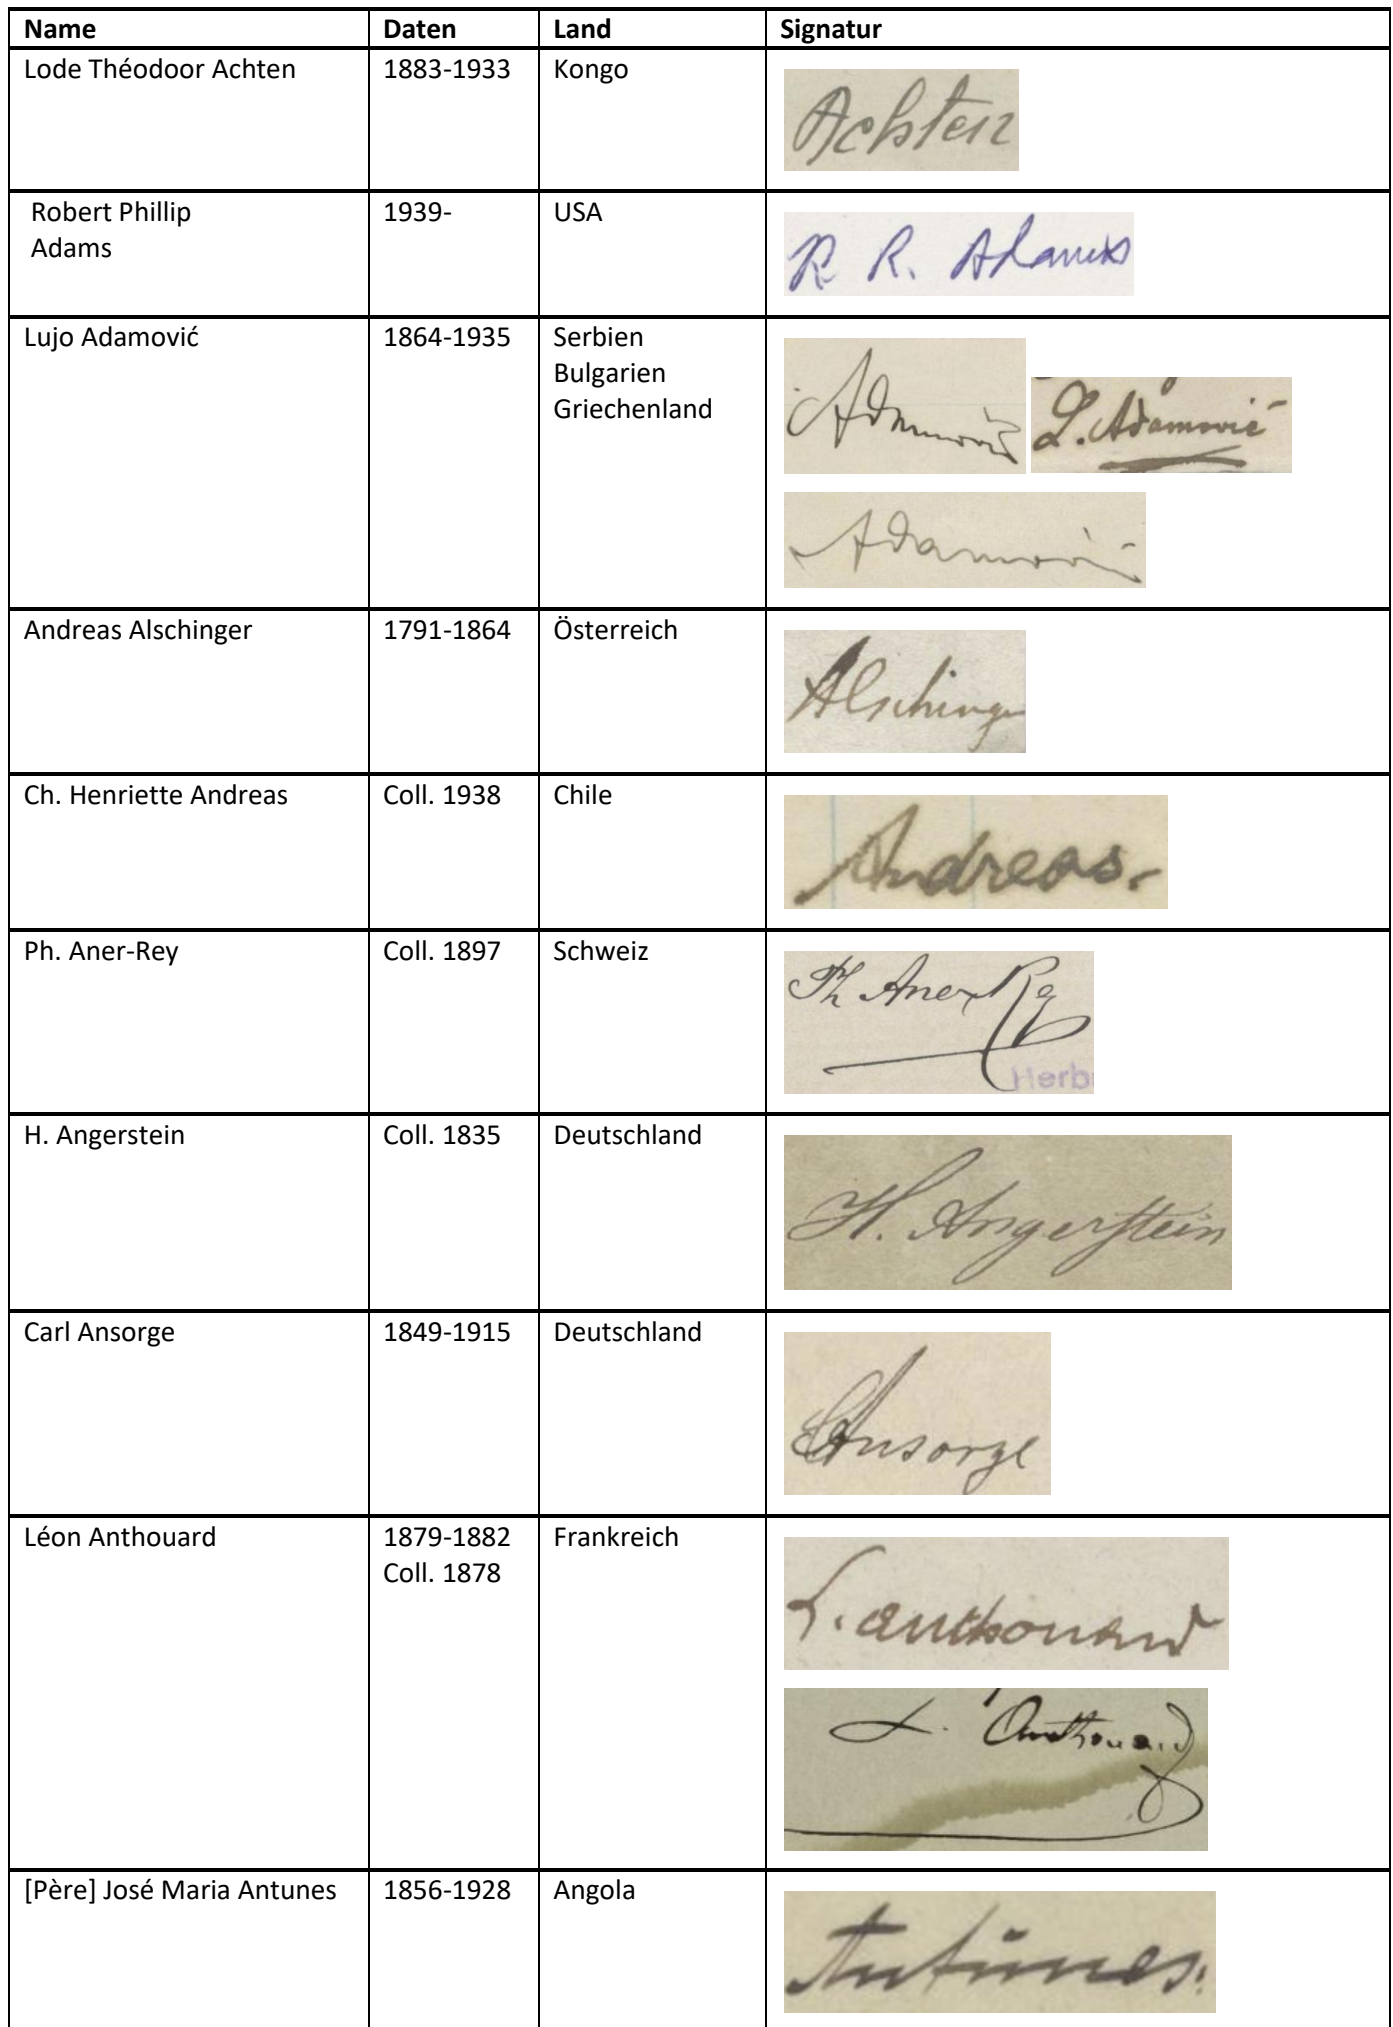 Name Daten Land Signatur
Lode Théodoor Achten 1883-1933 Kongo
Achten
Robert Phillip 1939- USA
Adams
R. P. Adams
Lujo Adamović 1864-1935 Serbien
Bulgarien
Griechenland
Adamović L. Adamović
Adamović
Andreas Alschinger 1791-1864 Österreich
Alschinger
Ch. Henriette Andreas Coll. 1938 Chile
Andreas.
Ph. Aner-Rey Coll. 1897 Schweiz
Ph Aner-Rey
Herb
H. Angerstein Coll. 1835 Deutschland
H. Angerstein
Carl Ansorge 1849-1915 Deutschland
CAnsorge
Léon Anthouard 1879-1882 Frankreich
Coll. 1878
L. anthouard
L. Anthouard
[Père] José Maria Antunes 1856-1928 Angola
Antunes.